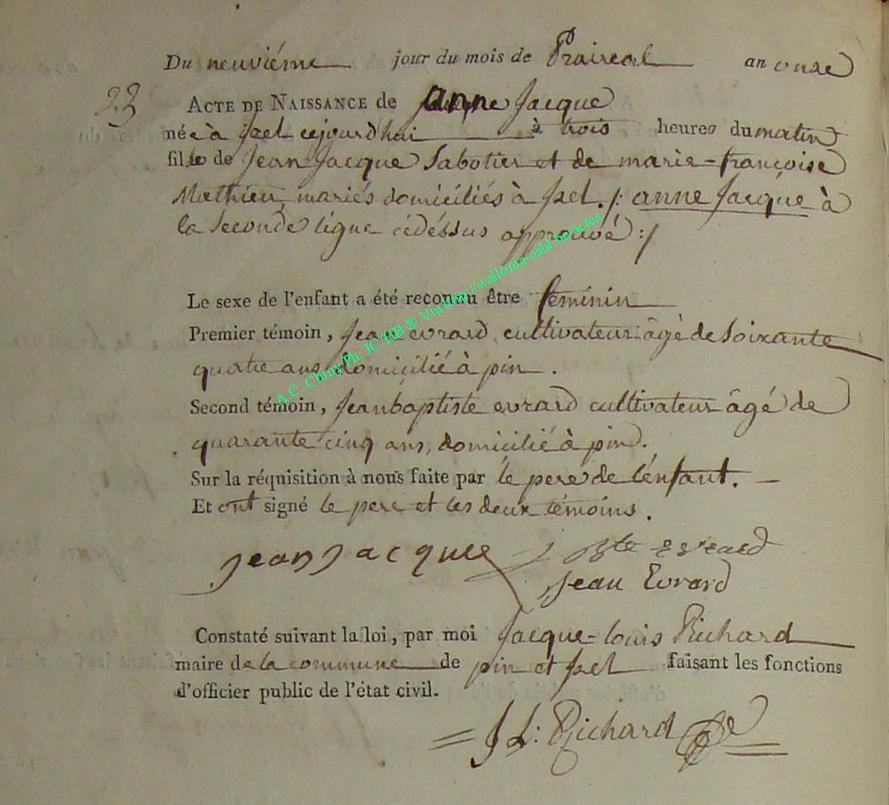 Du neuviéme jour du mois de Praireal an onze
23 ACTE DE NAISSANCE de anne Jacque
née à Izel cejourd'hui à trois heures du matin
fille de Jean Jacque Sabotier et de marie-françoise
Mathieu, mariés domiciliés à Izel. /: anne Jacque à
la seconde ligne cédéssus approuvé :/
Le sexe de l'enfant a été reconnu être féminin
Premier témoin, Jean evrard cultivateur âgé de soixante
quatre ans, domicilié à pin.
Second témoin, Jeanbaptiste evrard cultivateur âgé de
quarante cinq ans, domicilié à pin.
Sur la réquisition à nous faite par le pere de l'énfant.
Et ont signé le pere et les deux témoins.
Jean Jacque J Bte evrard
Jean Evrard
Constaté suivant la loi, par moi Jacque-louis Richard
maire de la commune de pin et Izel faisant les fonctions
d'officier public de l'état civil.
J L: Richard